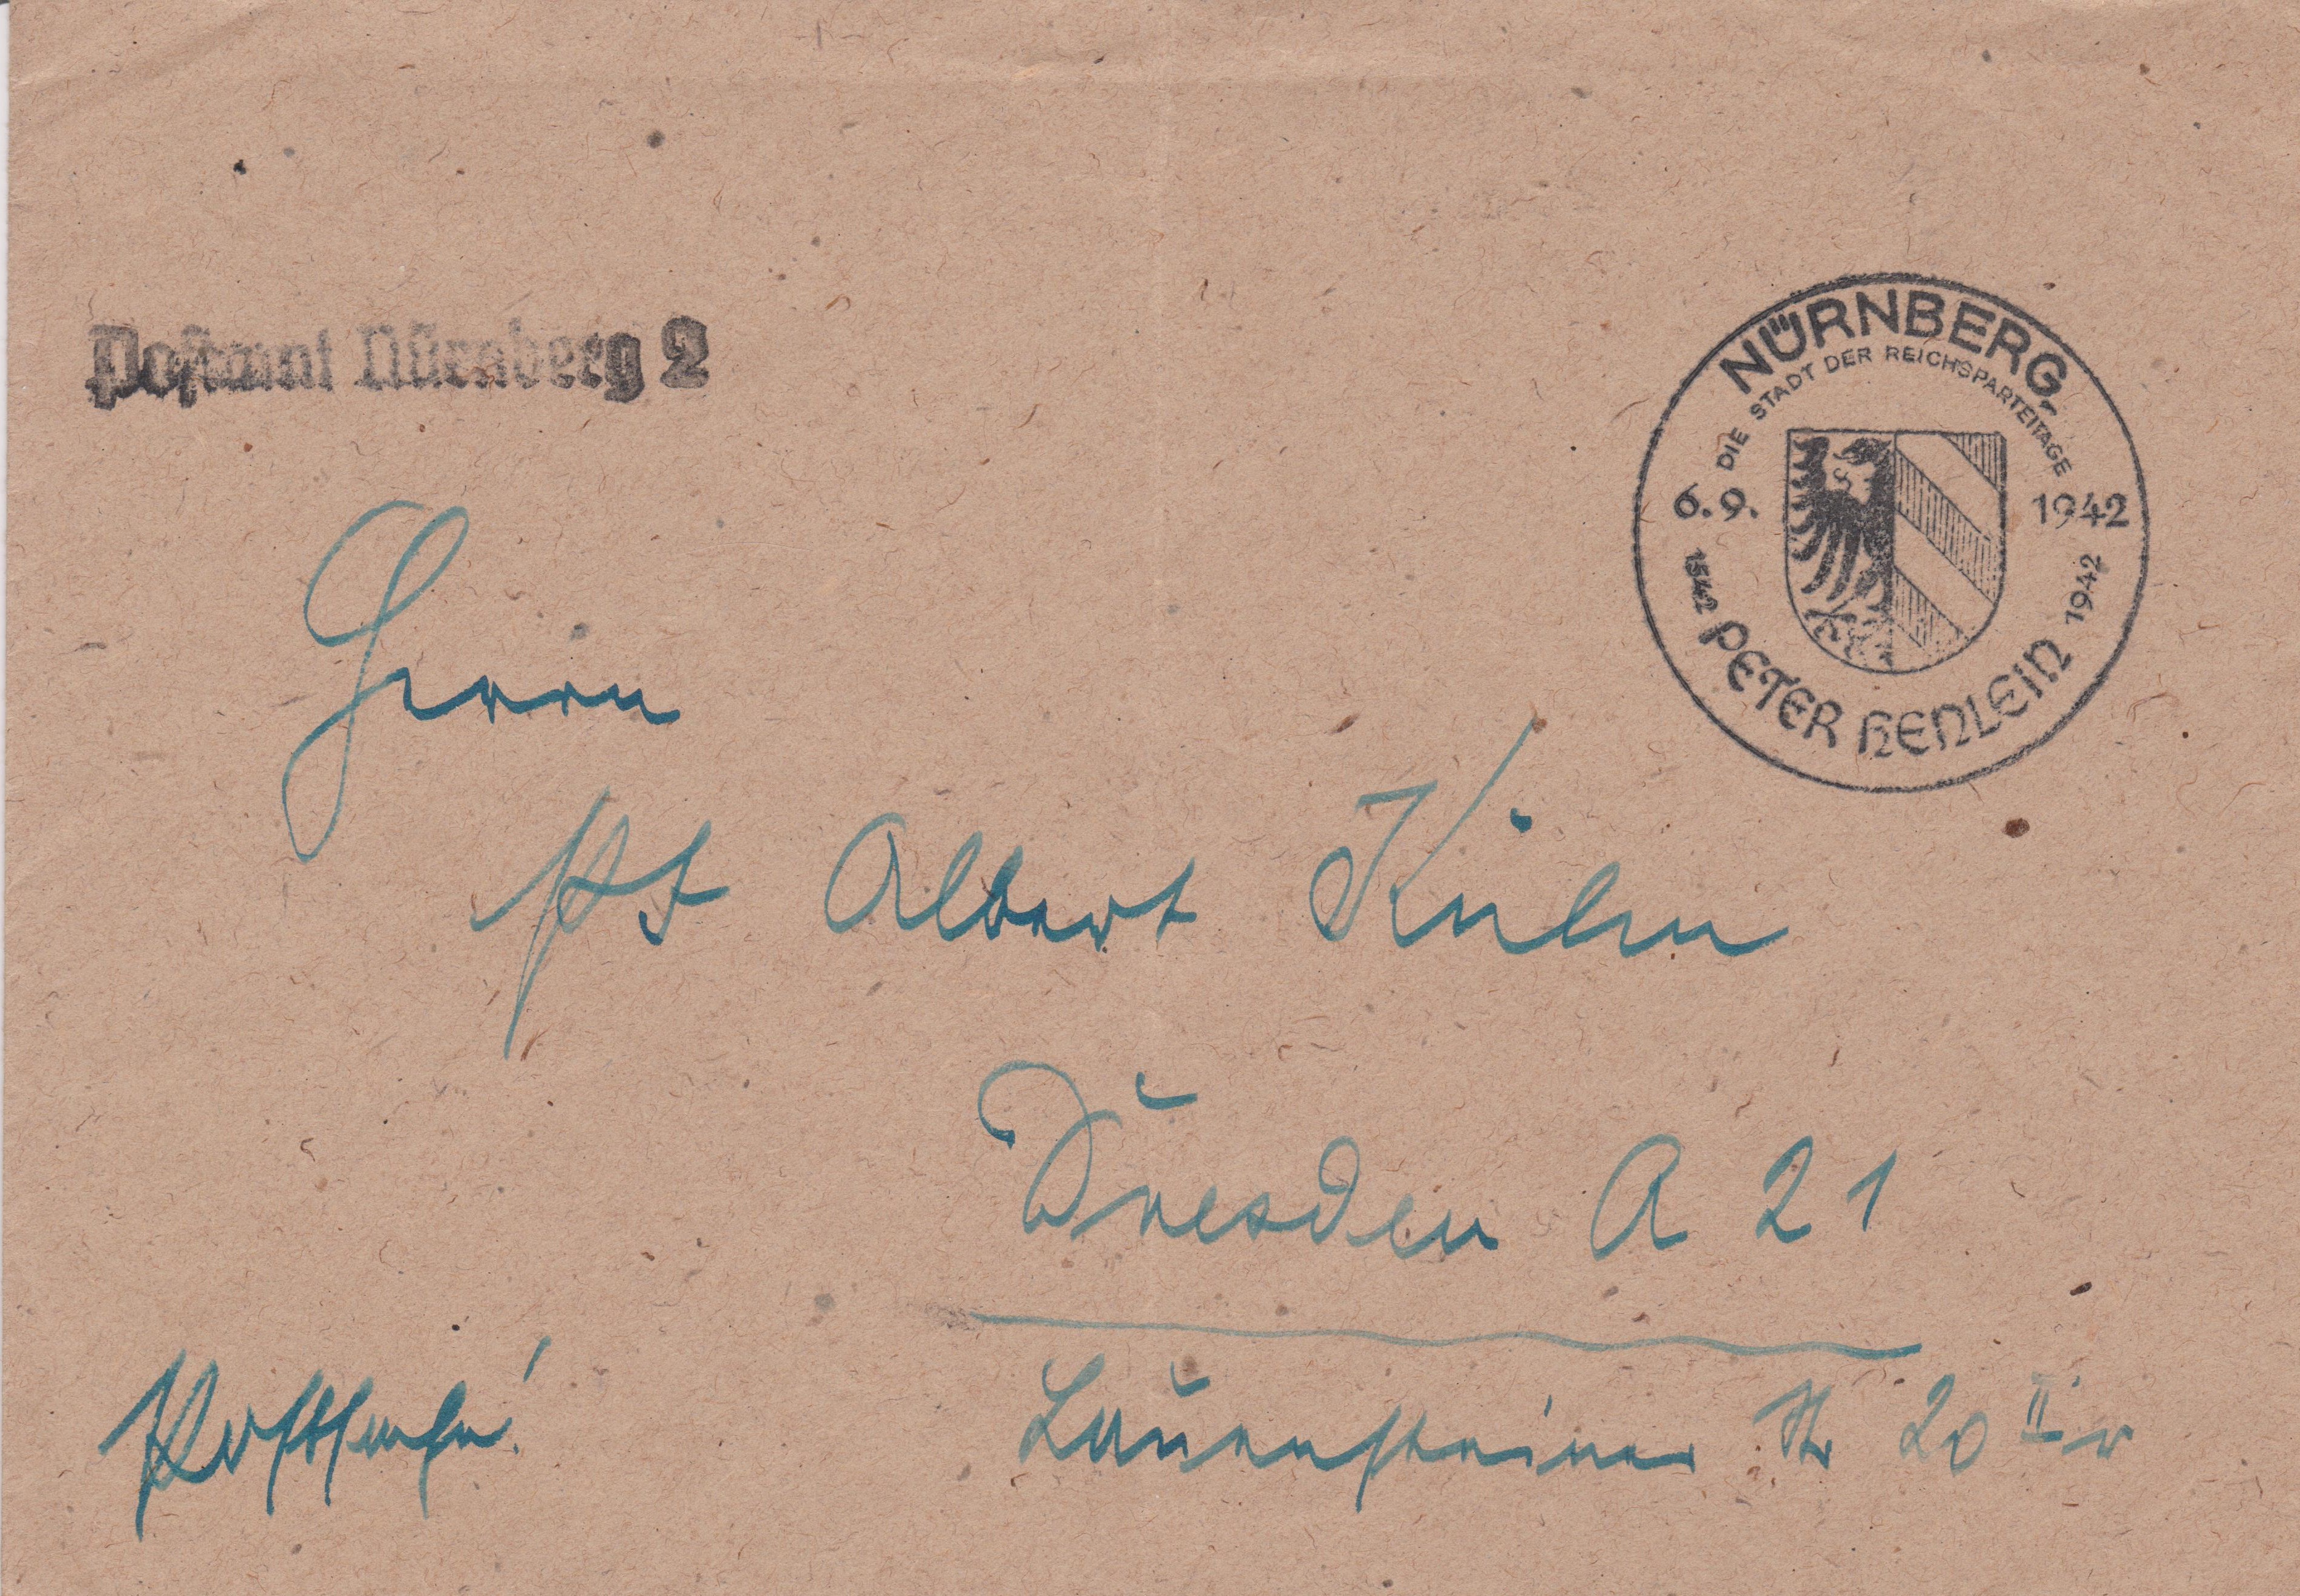 Postamt Nürnberg 2
NÜRNBERG
DIE STADT DER REICHSPARTEITAGE
6.9. 1942
1542 PETER HENLEIN 1942
Herrn
Albert Kühn
Dresden A 21
Lauensteiner Str 20 II r
Postsache!